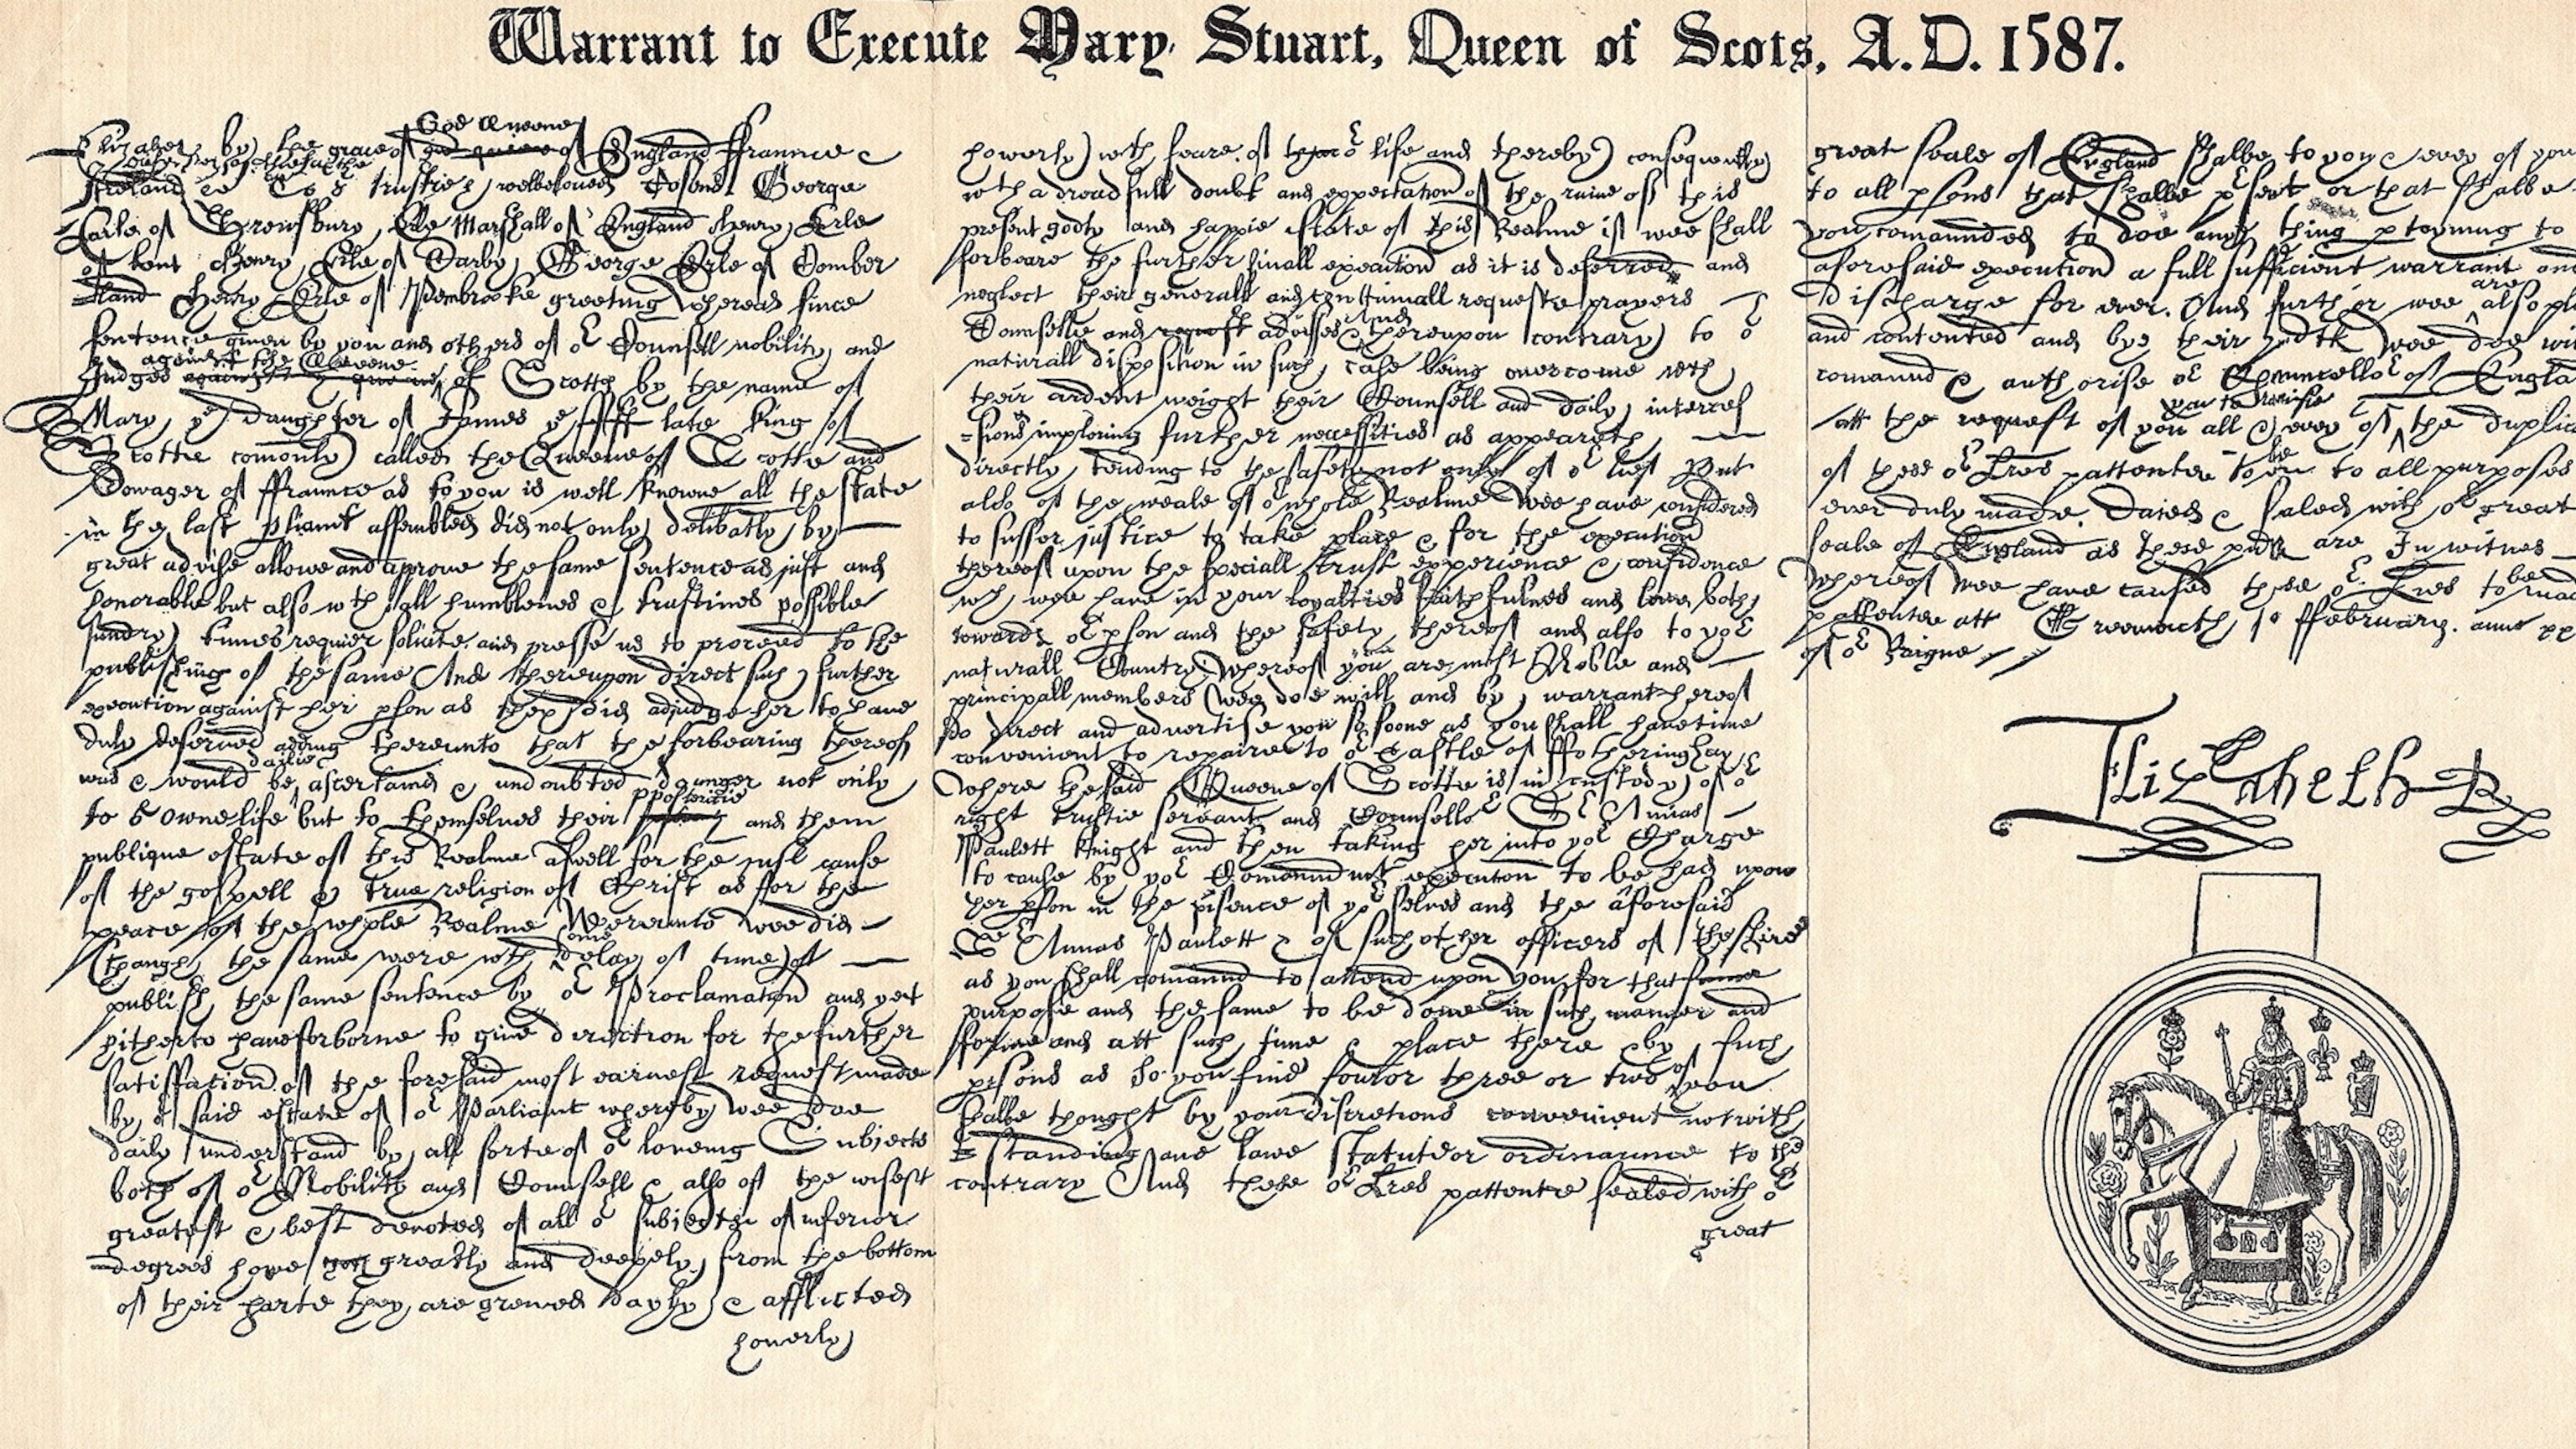 Warrant to Execute Mary Stuart, Queen of Scots, A.D. 1587.
God Queene
Elizabeth by the grace of of England ffraunce &
Ireland &c To o trustie & welbeloved Cosens George
Earle of Shrewsbury, Erle Marshall of England Henry Erle
of Kent Henry Erle of Darby, George Erle of Comber
=land Henry Erle of Pembrooke greeting Whereas since
sentence given by you and others of or Counsell nobility and
against the Queene
Judges of Scotts by the name of
Mary, ye daughter of James ye fifft late King of
Scotte comonly called the Queene of Scotte and
Dowager of ffraunce as to you is well knowne all the state
in the last pliamt assembled did not only delibatly by
great advise allowe and approve the same sentence as just and
honorable but also wth all humblenes & ernestnes possible
sundry times requier solicite and presse us to proceed to the
publishing of the same And thereupon direct such further
execution against her pson as they did adjudge her to have
duly deserved adding thereunto that the forbearing thereof
dailie
was & would be ascertaine & undoubted daunger not only
posteritie
to or owne life but to themselves their and them
publique estate of this Realme aswell for the cause
of the gospell & true religion of Christ as ffor the
peace of the whole Realme Whereunto wee did
some
(though the same were wth delay of time)
publish the same sentence by or Proclamation and yet
hitherto have forborne to give direction for the further
satisffation of the foresaid most earnest request made
by said estate of or Parliamt whereby wee doe
daily understand by all sorte of or loveing Subjects
both of or Nobility and Counsell & also of the wisest
greatest & best devoted of all or subjects of inferior
=degrees howe greatly and deepely from the bottom
of their harte they are greived dayly & afflicted
howerly
howerly) with feare of or life and thereby consequently
with a dreadfull doubt and expectation of the ruine of this
present godly and happie estate of this Realme if wee shall
forbeare the further finall execution as it is deferred and
neglect their generall and continuall requeste prayers
Counselle and advises And thereupon contrary to or
naturall disposition in such case being overcome with
their ardent weight their Counsell and daily interces
=sions imploring further necessities as appeareth
directly tending to the safety not only of or self But
also of the weale of or whole Realme Wee have considered
to suffer justice to take place & for the execution
thereof upon the speciall trust experience & confidence
wch wee have in your loyalties faithfulnes and love both
towards or pson and the safety thereof and also to yor
naturall Countrey whereof you are most Noble and
principall members wee doe will and by warrant hereof
do direct and advertise you so soone as you shall have time
convenient to repaire to or Castle of ffotheringhay
Where the said Queene of Scotte is in custody of or
right trustie servant and Counsellor Sr Amias
Paulett Knight and then taking her into yor Charge
to cause by yor Comaundmt execution to be had upon
her pson in the psence of yor selves and the aforesaid
Sr Amias Paulett & of such other officers of the shire
as you shall comaund to attend upon you for that
purpose and the same to be done in such manner and
forme and att such time & place there & by such
psons as to you five foure or three or two of you
shalbe thought by your discretions convenient notwith
=standing ane lawe statute or ordinaunce to the
contrary And these or Lres pattente sealed with or
great
great seale of England shalbe to you & every of you
to all psons that shalbe psent or that shalbe
you comaunded to doe any thing ptayning to
aforesaid execution a full sufficient warrant and
discharge for ever. And further wee are also pl
and contented and bye their wee doe wi
comaund & authorise or Chauncellor of Engla
att the request of you all & every of the duplic
of these or Lres pattente to be to all purposes
ever duly made. Dated & sealed with or great
seale of England as these are In witnes
whereof wee have caused these or Lres to be mad
pattente att Greenwich 1o ffebruary. anno
of or Raigne
Elizabeth R